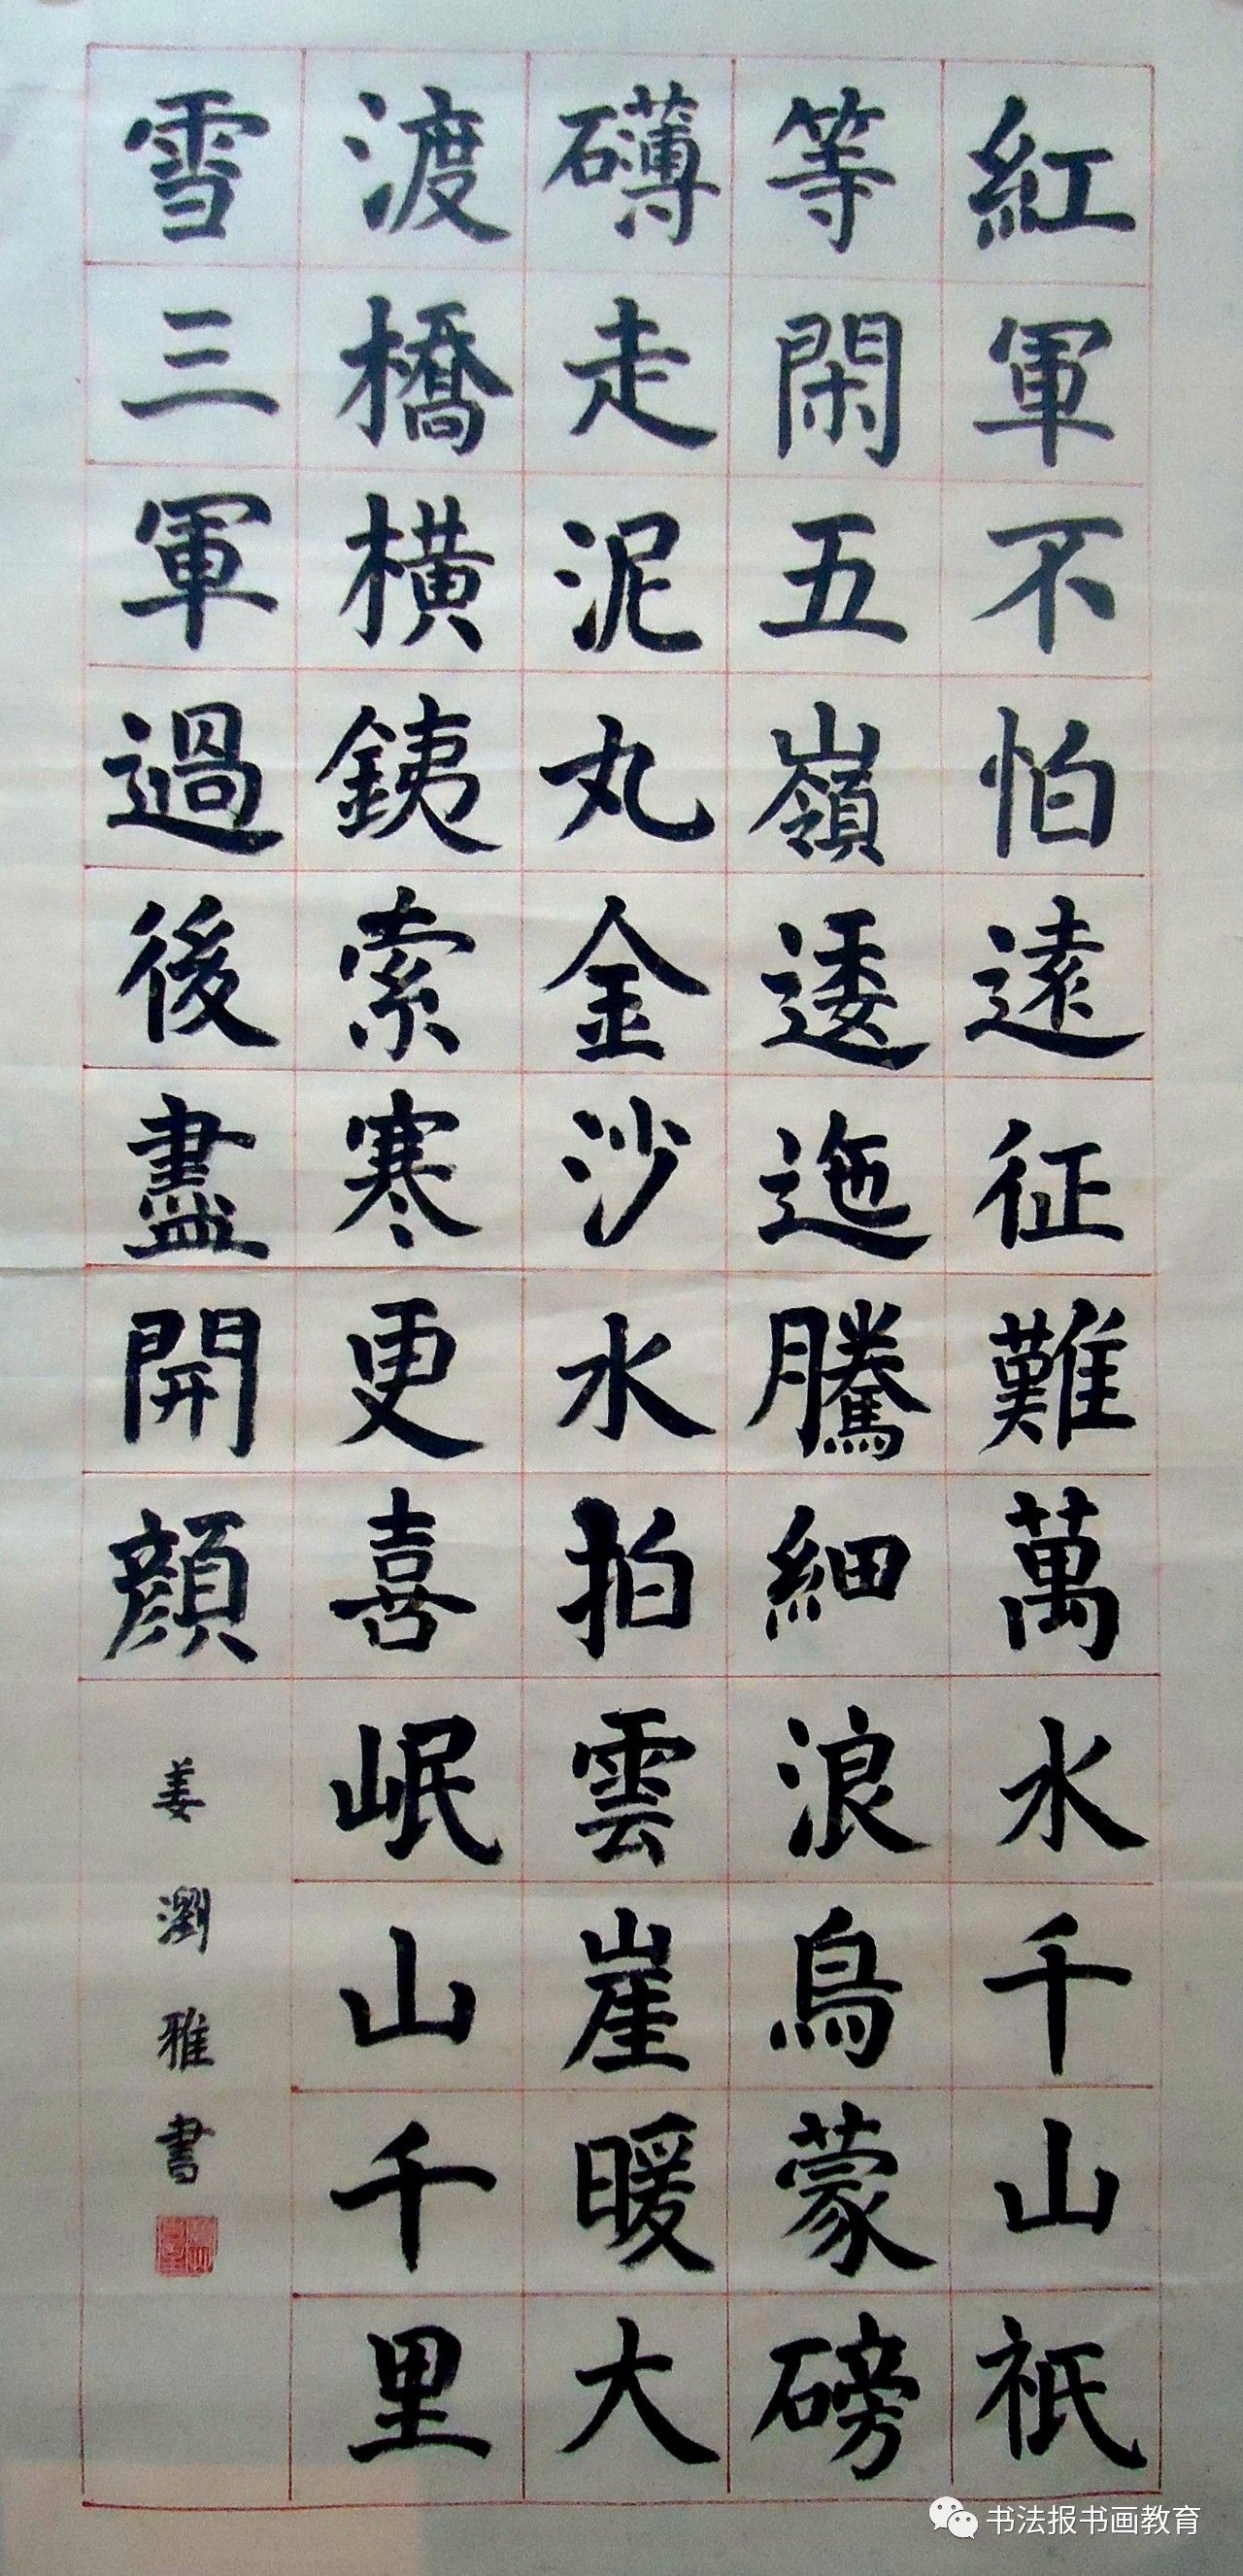 紅軍不怕遠征難萬水千山祇
等閑五嶺逶迤騰細浪鳥蒙磅
礴走泥丸金沙水拍雲崖暖大
渡橋橫銕索寒更喜岷山千里
雪三軍過後盡開顏
姜瀏雅書
书法报书画教育